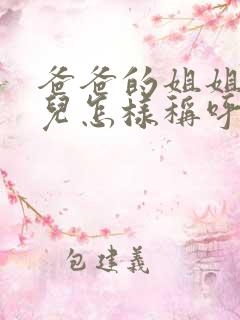 爸爸的姐姐
兒怎樣稱呼
包建義